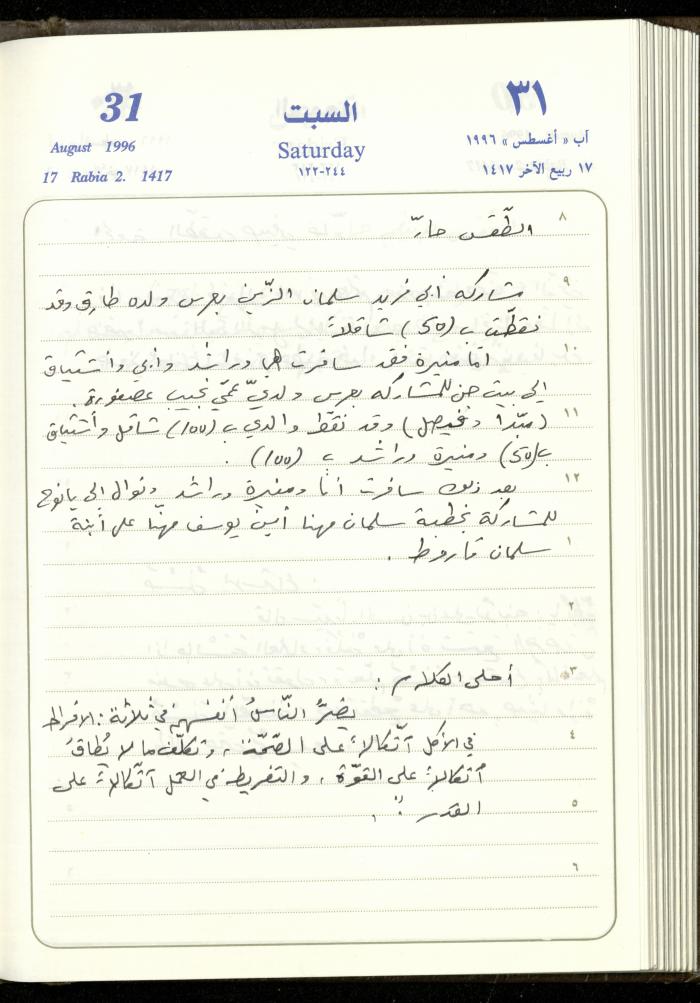 31 السبت ٣١
August 1996 Saturday آب « أغسطس » ١٩٩٦
17 Rabia 2. 1417 ٢٤٤-١٢٢ ١٧ ربيع الآخر ١٤١٧
٨ الطّقس حارّ
٩ مشاركة أبي فريد سلمان الزّين بعرس ولده طارق وقد
نقطّت ب (50) شاقلاً
١٠ أمّا منيرة فقد سافرت هي وراشد وأبي واشتياق
إلى بيت جن للمشاركه بعرس ولديّ عمّي نجيب عصفورة.
١١ وفيصل) وقد نقّط والدي ب (100) شاقل وأشتياق
ب (50) ومنيرة وراشد ب (100) .
١٢ بعد ذلك سافرت أنا ومنيرة وراشد ونوال إلى يانوح
للمشاركة بخطبة سلمان مهنا أبن يوسف مهنّا على أبنة
١ سلمان قاروط .
٢
٣ أحلى الكلام :
يضرُّ النّاسُ أنفسهم في ثلاثة : الافراط
٤ في الأكل آتّكالاً على الصّحّة ، وتكلّف ما لا يُطاقُ
أتكالاً على القوّة ، والتفريط في العمل آتّكالاً على
٥ القدر .
٦